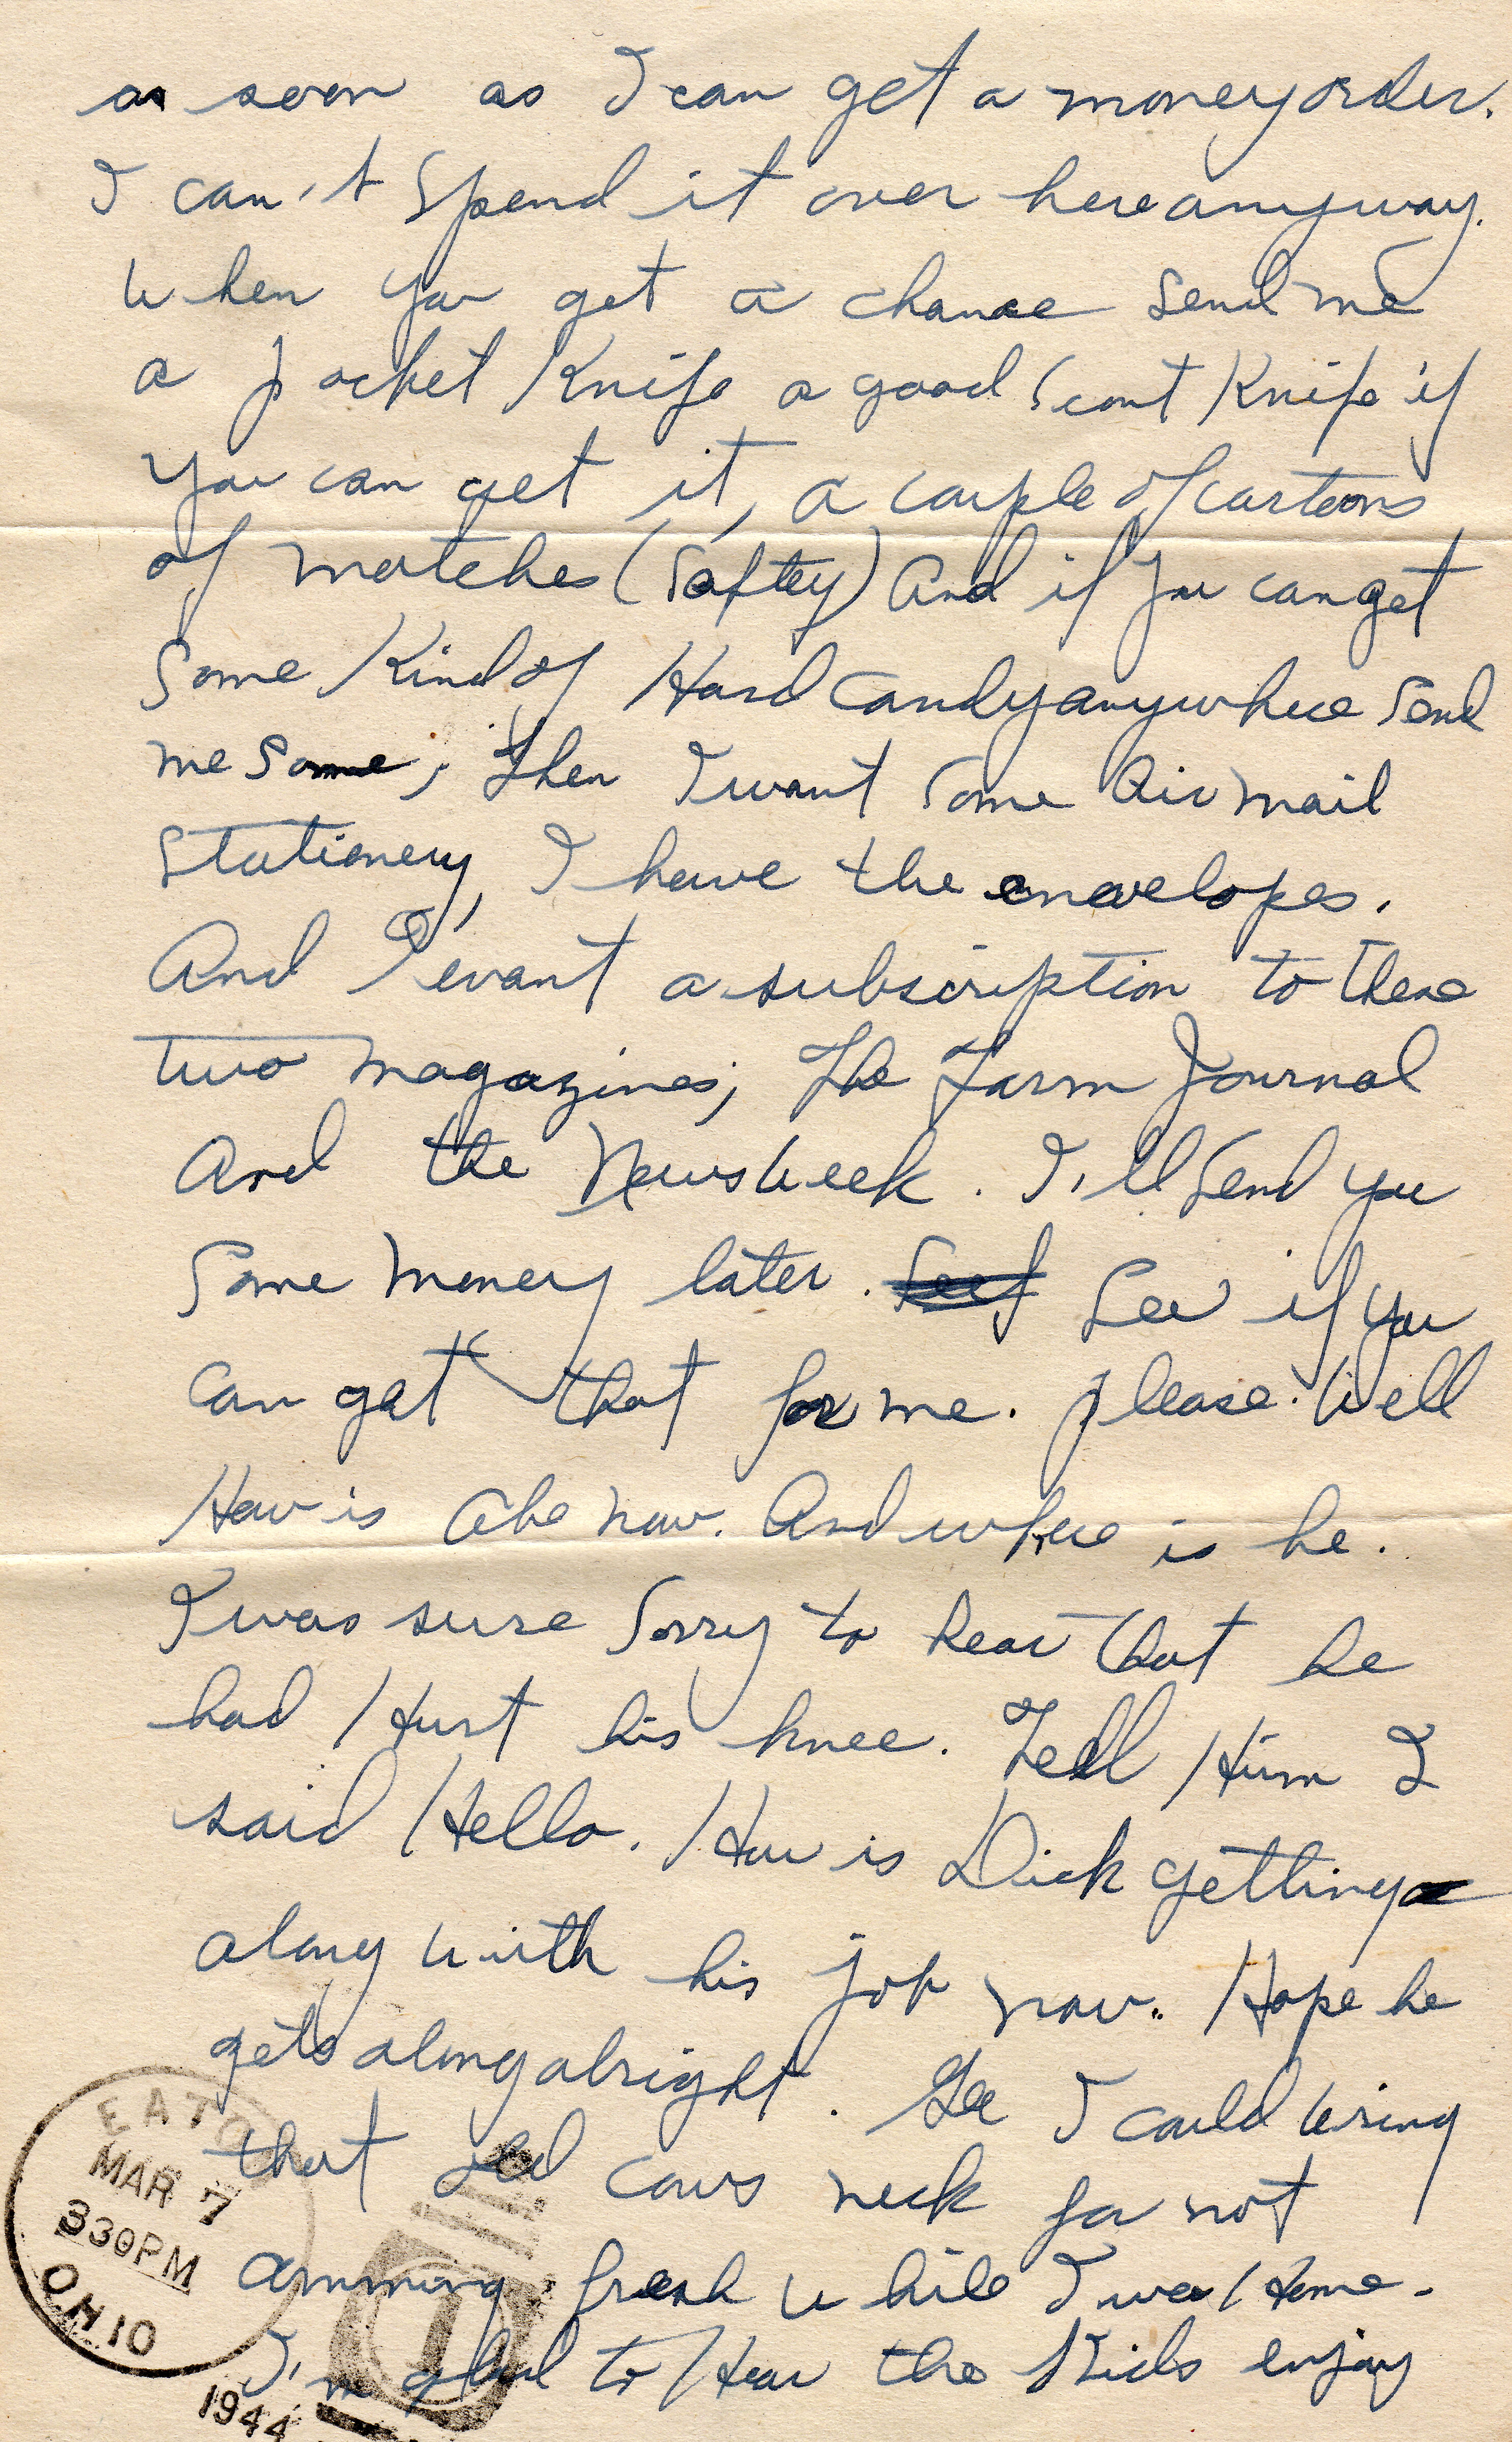 as soon as I can get a money order.
I can't spend it over here anyway.
When you get a chance send me
a pocket Knife a good Scout Knife if
you can get it, a couple of cartoons
of matches (Saftey) And if you can get
some Kind of Hard candy anywhere send
me some; then I want some Air mail
stationery, I have the envelopes.
And I want a subscription to these
two magazines; The Farm Journal
And the Newsweek. I'll send you
some money later. See if you
can get that for me. please. Well
How is Abe now. And where is he.
I was sure sorry to hear that he
had Hurt his knee. Tell Him I
said Hello. How is Dick getting
along with his job now. Hope he
gets along alright. Gee I could wring
that old cows neck for not
fresh while I was Home.
I'm glad to Hear the Kids enjoy
EATON
MAR 7
330PM
OHIO
1944